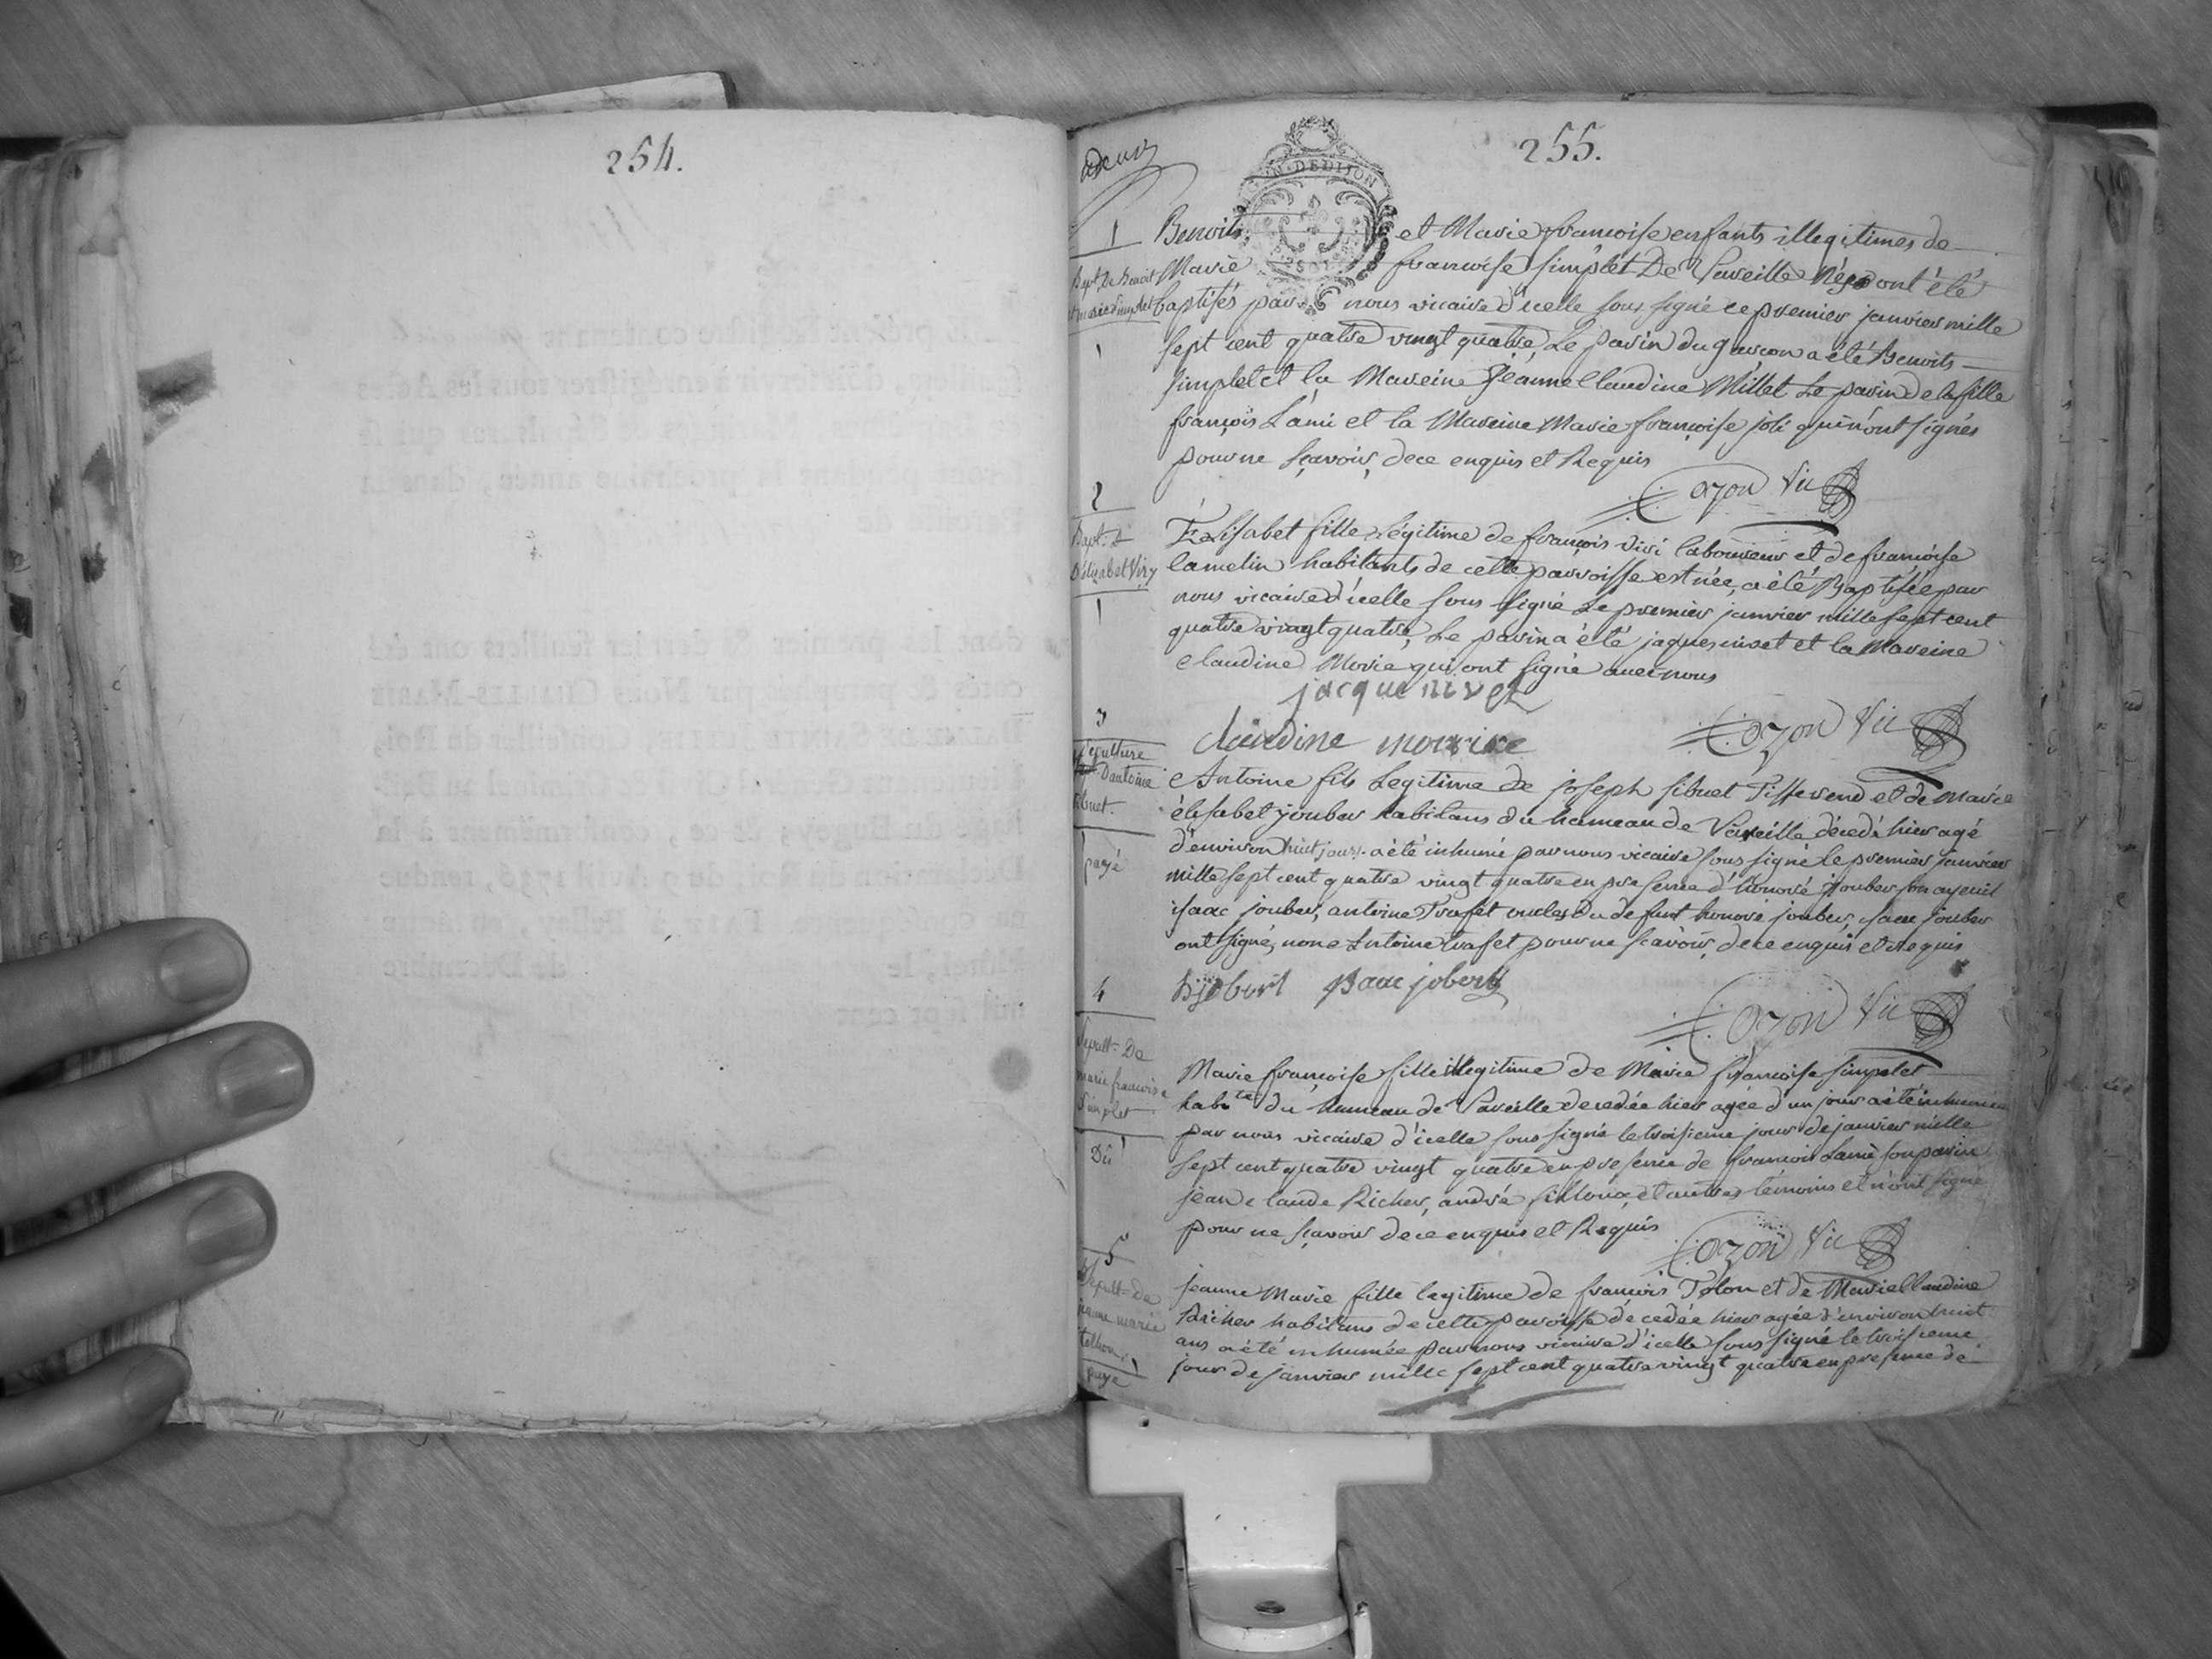 254.
255.
1
Bapt. De Benoit
et marie Simplet
1
Benoits et Marie françoise enfants illegitimes de
Marie françoise simplet De Pareille Nés ont été
baptisés par nous vicaire d'icelle sous signé ce premier janvier mille
sept cent quatre vingt quatre, Le parin du garçon a été Benoits
simplet et la Mareine Jeanne Claudine Millet Le parin de la fille
françois Lami et la Mareine Marie françoise joli qui n'ont signés
pour ne sçavoir, de ce enquis et Requis
Cozon Vic
2
Bapt. D
D'élizabet Viry
1
Élisabet fille Légitime de françois Viri laboureur et de françoise
lamelin habitants de cette parroisse est née, a été Baptisée par
nous vicaire d'icelle sous signé Le premier janvier mille sept cent
quatre vingt quatre, Le parin a été jaques nivet et la Mareine
Claudine Morie qui ont signé avec nous
jacque nivet
claudine mourice
Cozon Vic
3
Sepulture
D'antoine
sibuet
payé
Antoine fils Legitime de joseph sibuet Tisserend et de Marie
élisabet jouber habitans du hameau de Pareille décedé hier agé
d'environ huit jours a été inhumé par nous vicaire sous signé le premier janvier
mille sept cent quatre vingt quatre en presence d'honoré jouber son ayeuil
isaac jouber, antoine Trafet oncles du defunt honoré jouber, isaac jouber
ont signé, none Antoine trafet pour ne scavoir, de ce enquis et requis
hjobert isaac jobert
Cozon Vic
4
Sepult. De
marie francoise
Simplet
Dû
Marie françoise fille illegitime de Marie françoise simplet
habi.te du hameau de Pareille decedée hier agée d'un jour a été inhumée
par nous vicaire d'icelle sous signé le troisieme jour de janvier mille
sept cent quatre vingt quatre en presence de francois Lami son parin
jean claude Richer, andré filloux, et autres témoins et n'ont signé
pour ne sçavoir de ce enquis et Requis
Cozon Vic
5
Sepult. De
jeanne marie
tollon
payé
jeanne Marie fille legitime de francois Tolon et de Marie Claudine
Richer habitans de cette paroisse décedée hier agée d'environ huit
ans a été inhumée par nous vicaire d'icelle sous signé le troisieme
jour de janvier mille sept cent quatre vingt quatre en presence de